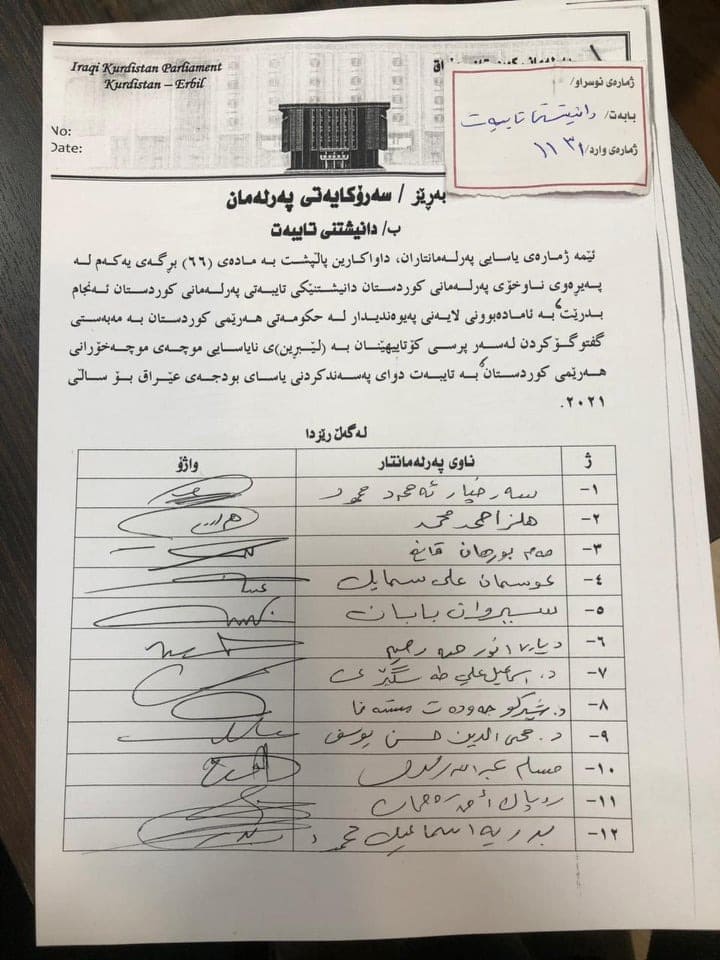 Iraqi Kurdistan Parliament
Kurdistan – Erbil
No:
Date:
ژمارەی نوسراو/
بابەت/ دانیشتنی تایبەت
ژمارەی وارد/ ١١٣١
بەڕێز / سەرۆکایەتی پەرلەمان
ب/ دانیشتنی تایبەت
ئێمە ژمارەی یاسایی پەرلەمانتاران، داواکارین پاڵپشت بە مادەی (٦٦) بڕگەی یەکەم لە
پەیڕەوی ناوخۆی پەرلەمانی کوردستان دانیشتنێکی تایبەتی پەرلەمانی کوردستان ئەنجام
بدرێت، بە ئامادەبوونی لایەنی پەیوەندیدار لە حکومەتی هەرێمی کوردستان بە مەبەستی
گفتوگۆکردن لەسەر پرسی کۆتاییهێنان بە (لێبڕین)ی نایاسایی موچەی موچەخۆرانی
هەرێمی کوردستان، بە تایبەت دوای پەسەندکردنی یاسای بودجەی عێراق بۆ ساڵی
٢٠٢١.
لەگەڵ رێزدا
ژ ناوی پەرلەمانتار واژۆ
١- سەرخێڵ ئەحمەد محمود
٢- هلز احمد محمد
٣- مەم بورهان قانع
٤- عوسمان علی سمایل
٥- سیروان بابان
٦- دیاری انور حمە رحیم
٧- د. اسماعیل علی طە سگێڕی
٨- د. شێرکو جەودەت مستەفا
٩- د. محی الدین حسن یوسف
١٠- مسلم عبدالله رسول
١١- روپاک أحمد رەحمان
١٢- بدریە اسماعیل محمود